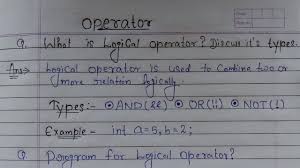 Operator
Q. What is Logical operator? Discus it's types.
Ans→ Logical operator is used to combine two or
more relation logically.
Types:- ⊙ AND(&&) ⊙ OR(||) ⊙ NOT(!)
Example - int a=5, b=2;
Q Program for Logical operator?